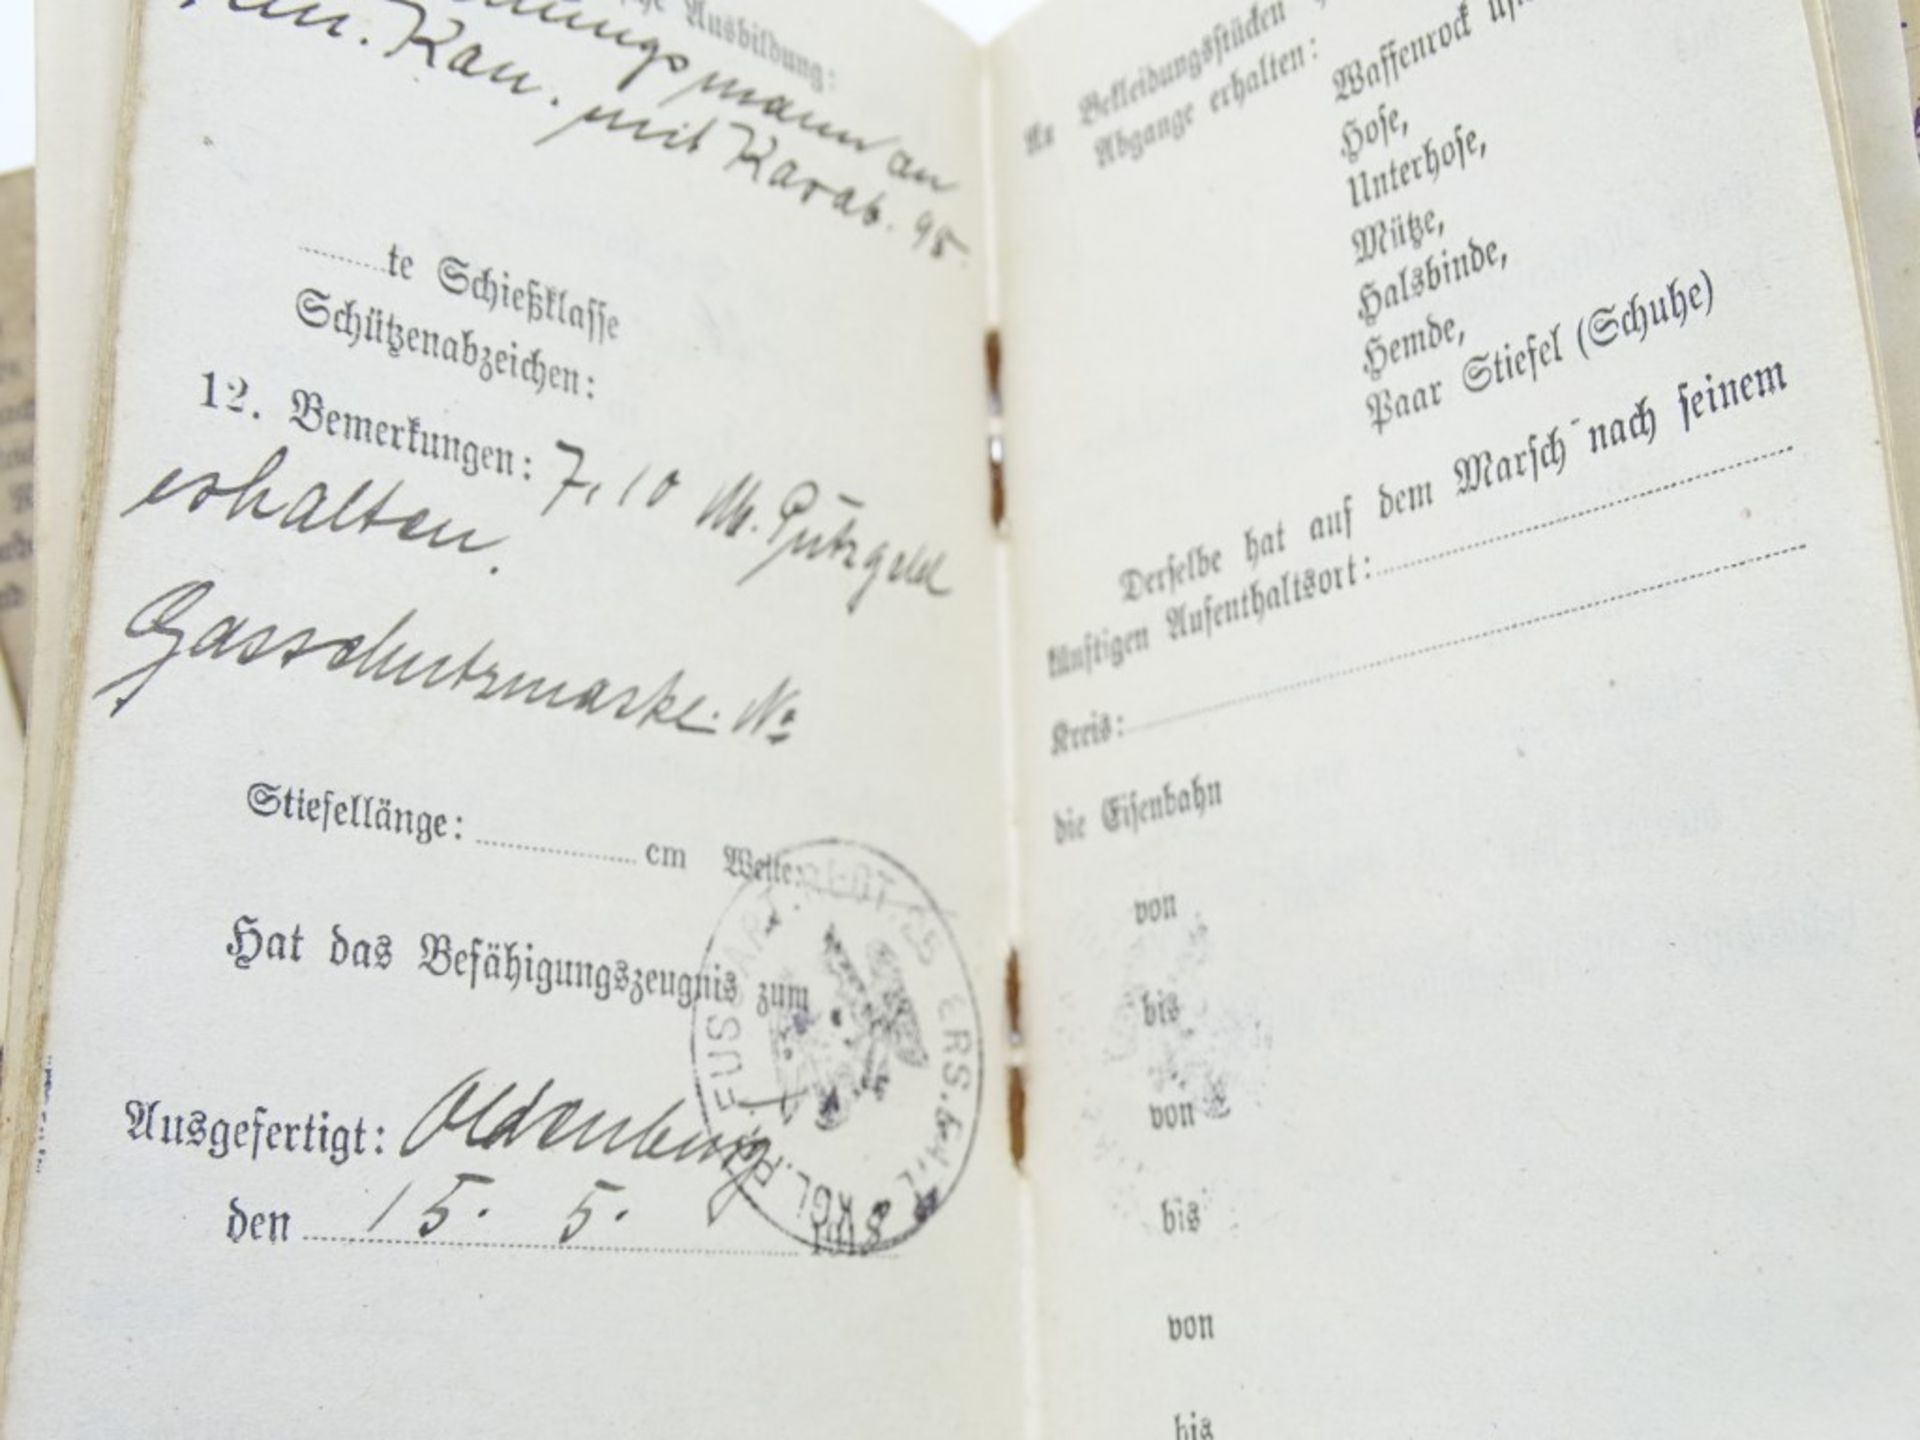 Ausbildung:
mann an
Kan. mit Karab. 95
te Schießklasse
Schützenabzeichen:
12. Bemerkungen: 7,10 M. Putzgeld
erhalten.
Gasschutzmaske No
Stiefellänge: cm Weite:
Hat das Befähigungszeugnis zum
Ausgefertigt: Oldenburg
den 15. 5. 1918
FUSSART. ERS. KGL.
An Bekleidungsstücken
Abgange erhalten:
Waffenrock
Hose,
Unterhose,
Mütze,
Halsbinde,
Hemde,
Paar Stiefel (Schuhe)
Derselbe hat auf dem Marsch nach seinem
künftigen Aufenthaltsort:
Kreis:
die Eisenbahn
von
bis
von
bis
von
bis